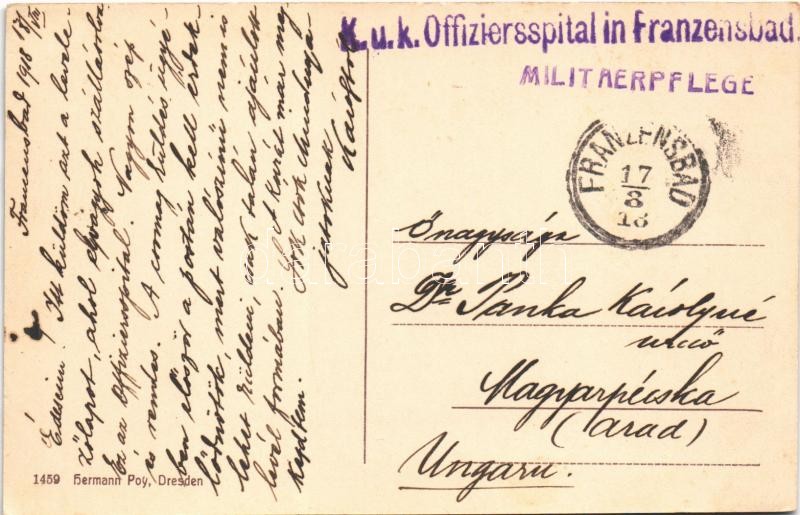 K.u.k. Offiziersspital in Franzensbad.
MILITAERPFLEGE
FRANZENSBAD
17
8
18
Franzensbad 1918 17/VIII
Édeseim! Itt küldöm ezt a levele-
zőlapot, ahol elvagyok szállásolva.
Ez az Offiziersspital. Nagyon szép
és rendes. A csomag küldés ügyé-
ben először a postán kell érdek-
lődnötök, mert valószinü nem is
lehet küldeni, csak talán ajánlott
levél formában! A kurát már meg
kezdtem. Sok csók mindnyá-
jatoknak
Károlytól
Őnagysága
Dr. Panka Károlyné
urnő
Magyarpécska
(Arad)
Ungarn.
1459 Hermann Poy, Dresden
darabanth